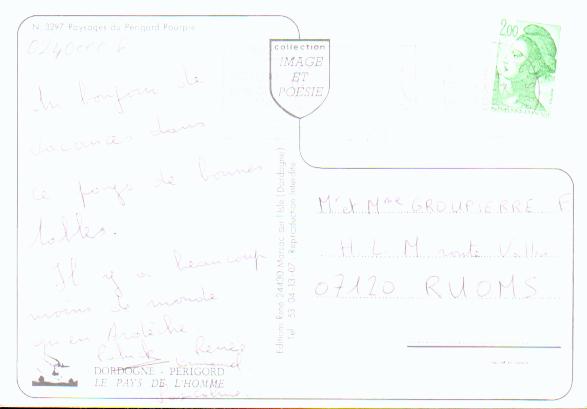 N. 3297 Paysages du Périgord Pourpre
collection
IMAGE
ET
POÉSIE
2,00
Un bonjour de
vacances dans
ce pays de bonnes
tables.
Il y a beaucoup
moins de monde
qu'en Ardèche
Renée
Editions René 24430 Marsac sur l'Isle (Dordogne)
Tél. 53 04 13 07 Reproduction interdite
Mr et Mme GROUPIERRE F
H L M route
07120 RUOMS
DORDOGNE - PÉRIGORD
LE PAYS DE L'HOMME